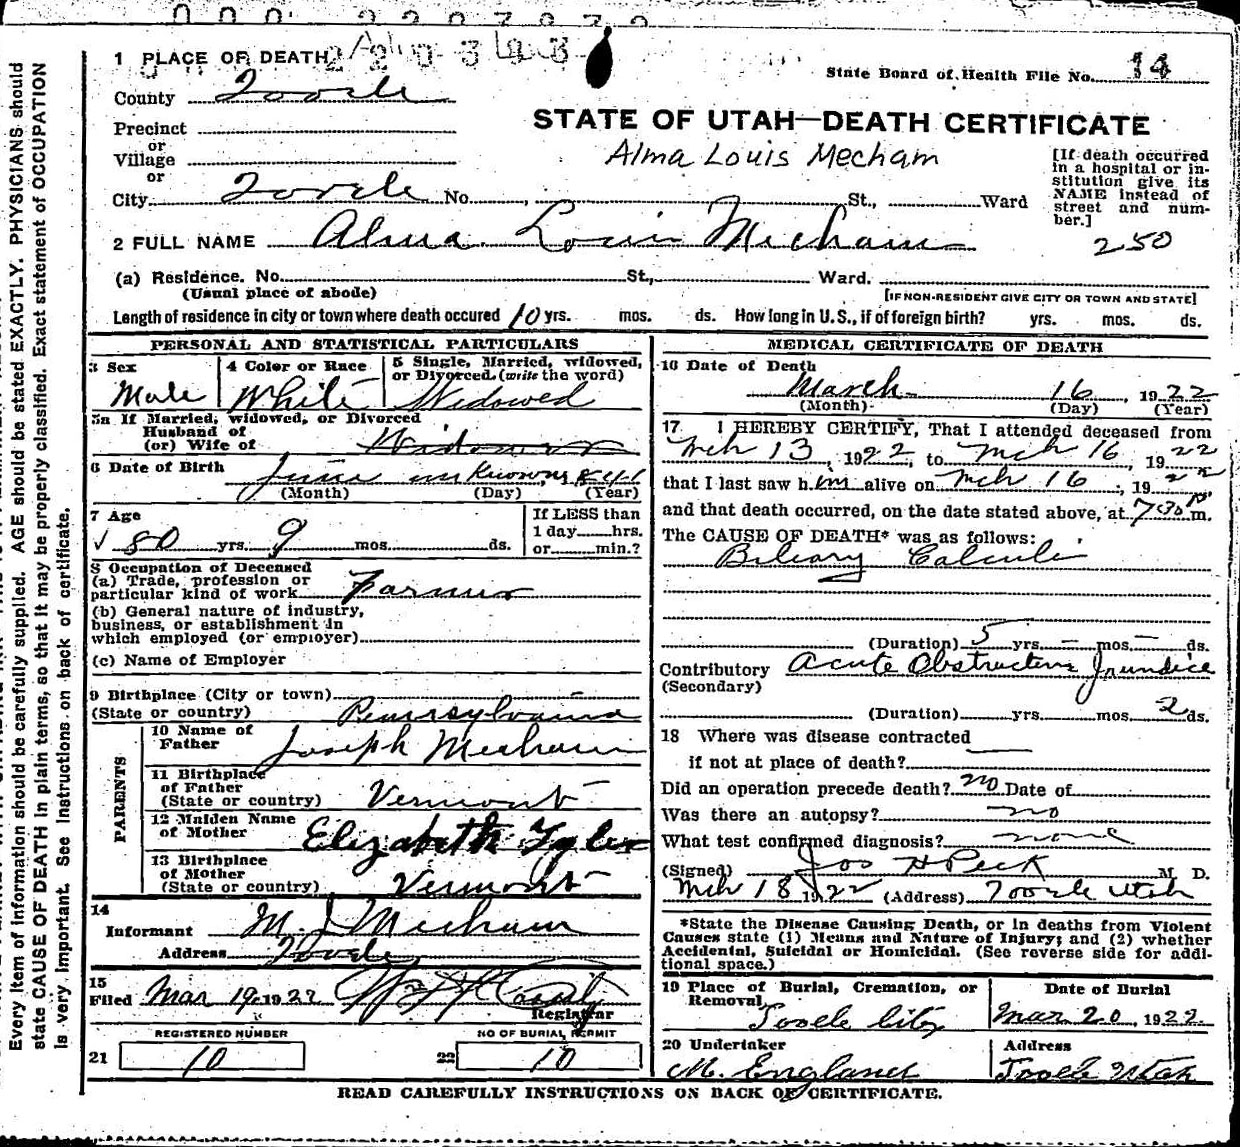 1 PLACE OF DEATH
State Board of Health File No. 14
County Tooele
STATE OF UTAH—DEATH CERTIFICATE
Precinct
or
Village
or
Alma Louis Mecham
[If death occurred in a hospital or in-
stitution give its
NAME instead of
street and num-
ber.]
City Tooele No. , St., Ward
2 FULL NAME Alma Louis Mecham
250
(a) Residence. No. St., Ward.
(Usual place of abode)
[IF NON-RESIDENT GIVE CITY OR TOWN AND STATE]
Length of residence in city or town where death occured 10 yrs. mos. ds. How long in U.S., if of foreign birth? yrs. mos. ds.
PERSONAL AND STATISTICAL PARTICULARS
3 Sex
Male
4 Color or Race
White
5 Single, Married, widowed,
or Divorced. (write the word)
Widowed
5a If Married, widowed, or Divorced
Husband of
(or) Wife of Widower
6 Date of Birth
June unknown, 1841
(Month) (Day) (Year)
7 Age
80 yrs. 9 mos. ds.
If LESS than
1 day hrs.
or min.?
8 Occupation of Deceased
(a) Trade, profession or
particular kind of work Farmer
(b) General nature of industry,
business, or establishment in
which employed (or employer)
(c) Name of Employer
9 Birthplace (City or town)
(State or country) Pennsylvania
PARENTS
10 Name of
Father Joseph Mecham
11 Birthplace
of Father
(State or country) Vermont
12 Maiden Name
of Mother Elizabeth Tyler
13 Birthplace
of Mother
(State or country) Vermont
14
Informant M. J. Mecham
Address Tooele
15
Filed Mar 19, 1922
Registrar
REGISTERED NUMBER
21 10
NO OF BURIAL PERMIT
22 10
MEDICAL CERTIFICATE OF DEATH
16 Date of Death
March 16, 1922
(Month) (Day) (Year)
17 I HEREBY CERTIFY, That I attended deceased from
Mch 13, 1922, to Mch 16, 1922
that I last saw him alive on Mch 16, 1922
and that death occurred, on the date stated above, at 7:30 P m.
The CAUSE OF DEATH* was as follows:
Biliary Calculi
(Duration) 5 yrs. — mos. — ds.
Contributory Acute Obstructive Jaundice
(Secondary)
(Duration) yrs. mos. 2 ds.
18 Where was disease contracted
if not at place of death?
Did an operation precede death? no Date of
Was there an autopsy? no
What test confirmed diagnosis? none
(Signed) Jos H Peck M. D.
Mch 18 1922 (Address) Tooele Utah
*State the Disease Causing Death, or in deaths from Violent
Causes state (1) Means and Nature of Injury; and (2) whether
Accidental, Suicidal or Homicidal. (See reverse side for addi-
tional space.)
19 Place of Burial, Cremation, or
Removal
Tooele City
Date of Burial
Mar 20, 1922.
20 Undertaker
M. England
Address
Tooele Utah
READ CAREFULLY INSTRUCTIONS ON BACK OF CERTIFICATE.
Every item of information should be carefully supplied. AGE should be stated EXACTLY. PHYSICIANS should
state CAUSE OF DEATH in plain terms, so that it may be properly classified. Exact statement of OCCUPATION
is very important. See instructions on back of certificate.